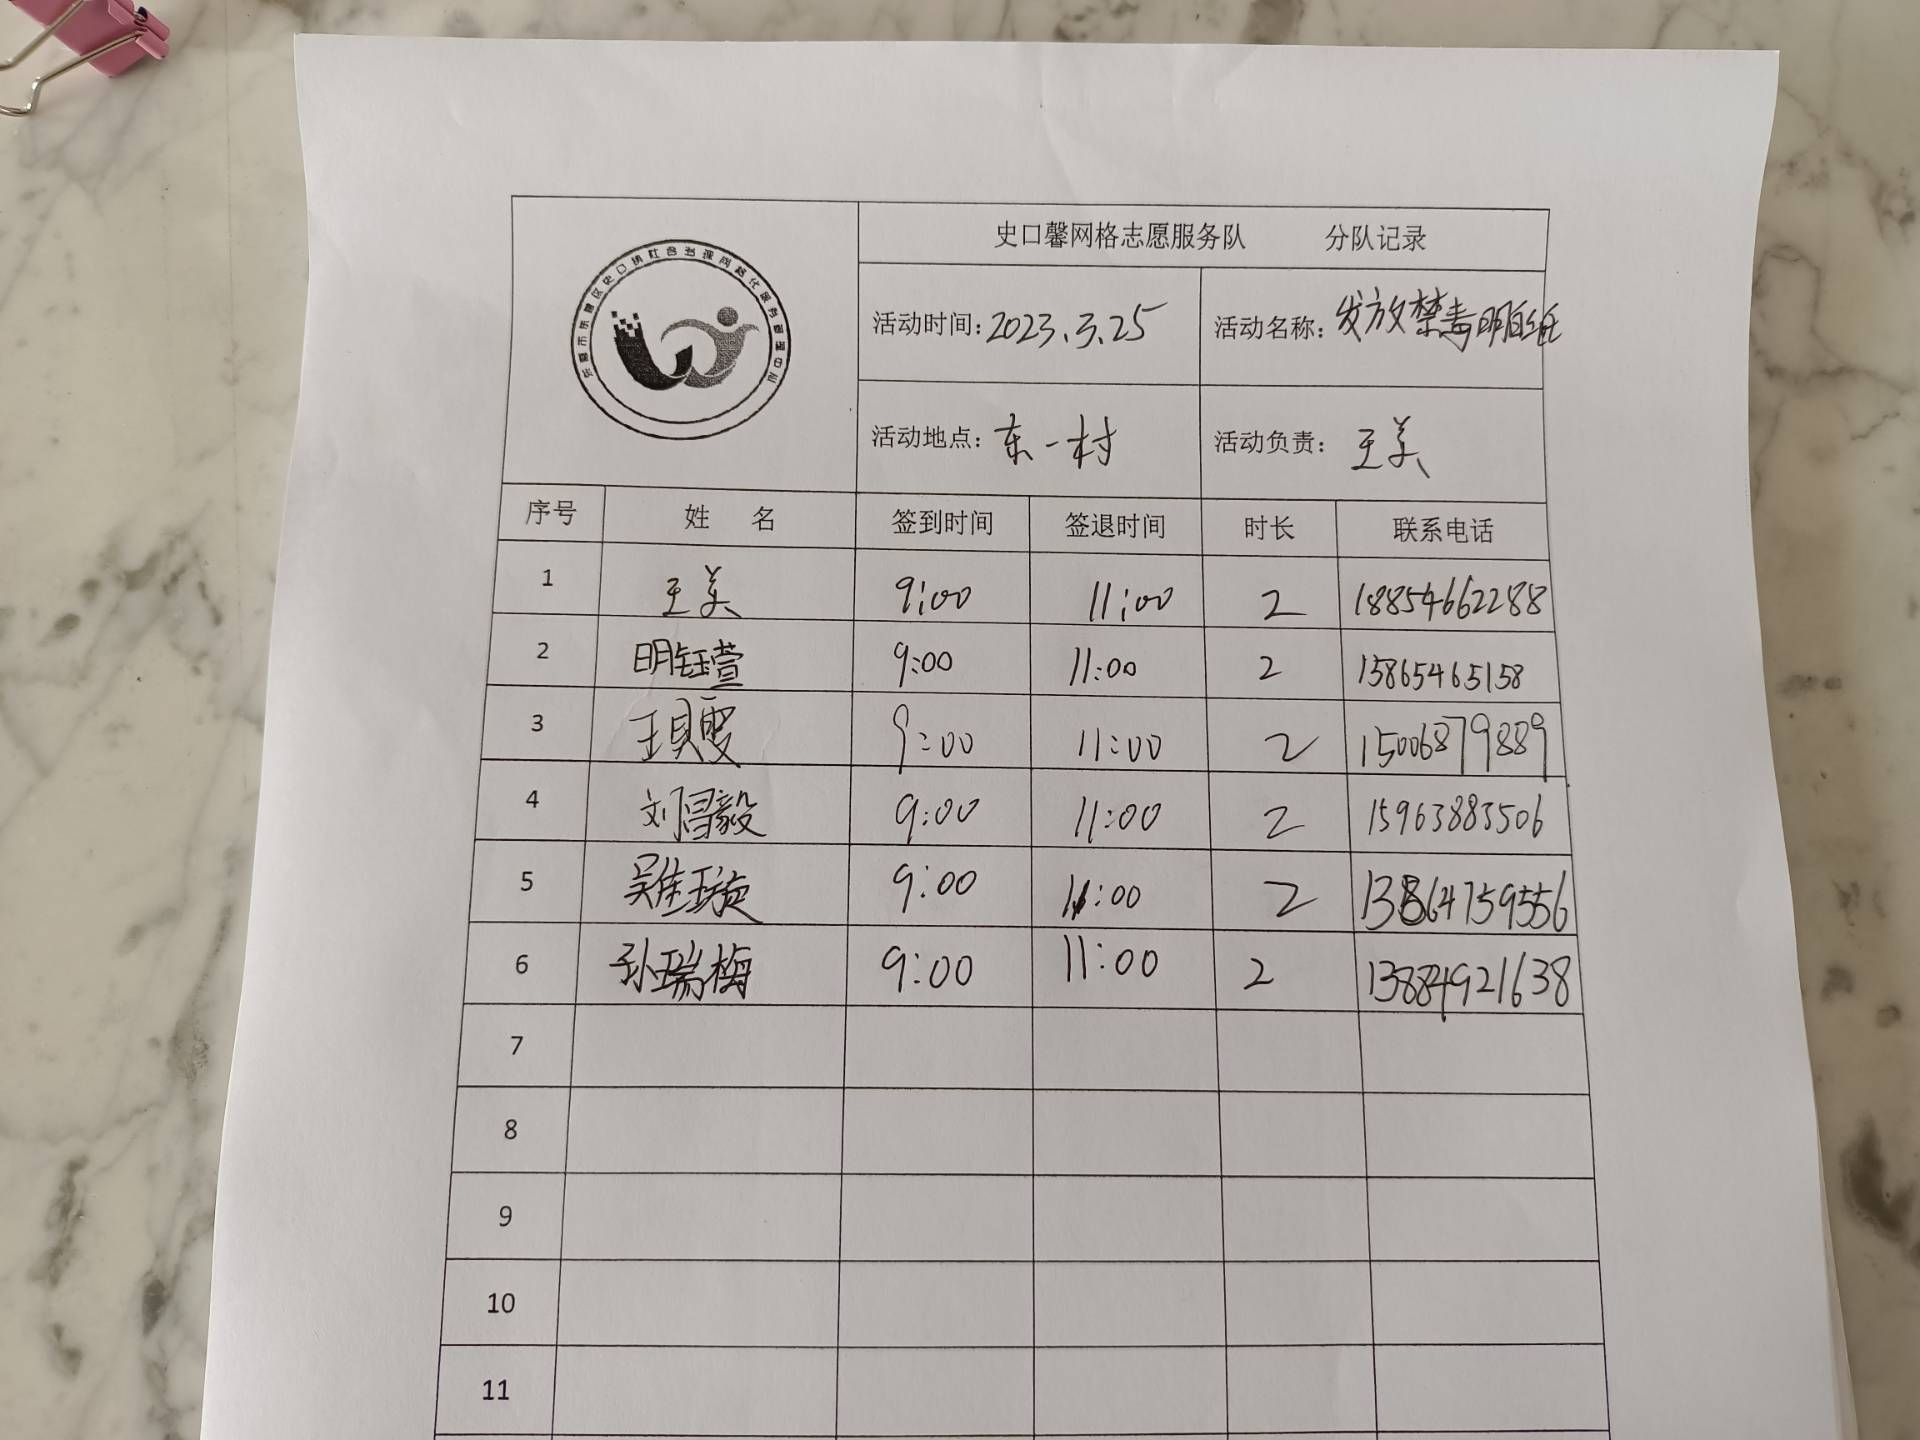 东营市东营区史口镇社会治理网格化服务管理中心
史口馨网格志愿服务队 分队记录
活动时间: 2023.3.25 活动名称: 发放禁毒明白纸
活动地点: 东一村 活动负责: 王美
序号 姓 名 签到时间 签退时间 时长 联系电话
1 王美 9:00 11:00 2 18854662288
2 明钰萱 9:00 11:00 2 15865465158
3 王贝 9:00 11:00 2 15006879889
4 刘昌毅 9:00 11:00 2 15963883506
5 吴佳璇 9:00 11:00 2 13864759556
6 孙瑞梅 9:00 11:00 2 13884921638
7
8
9
10
11